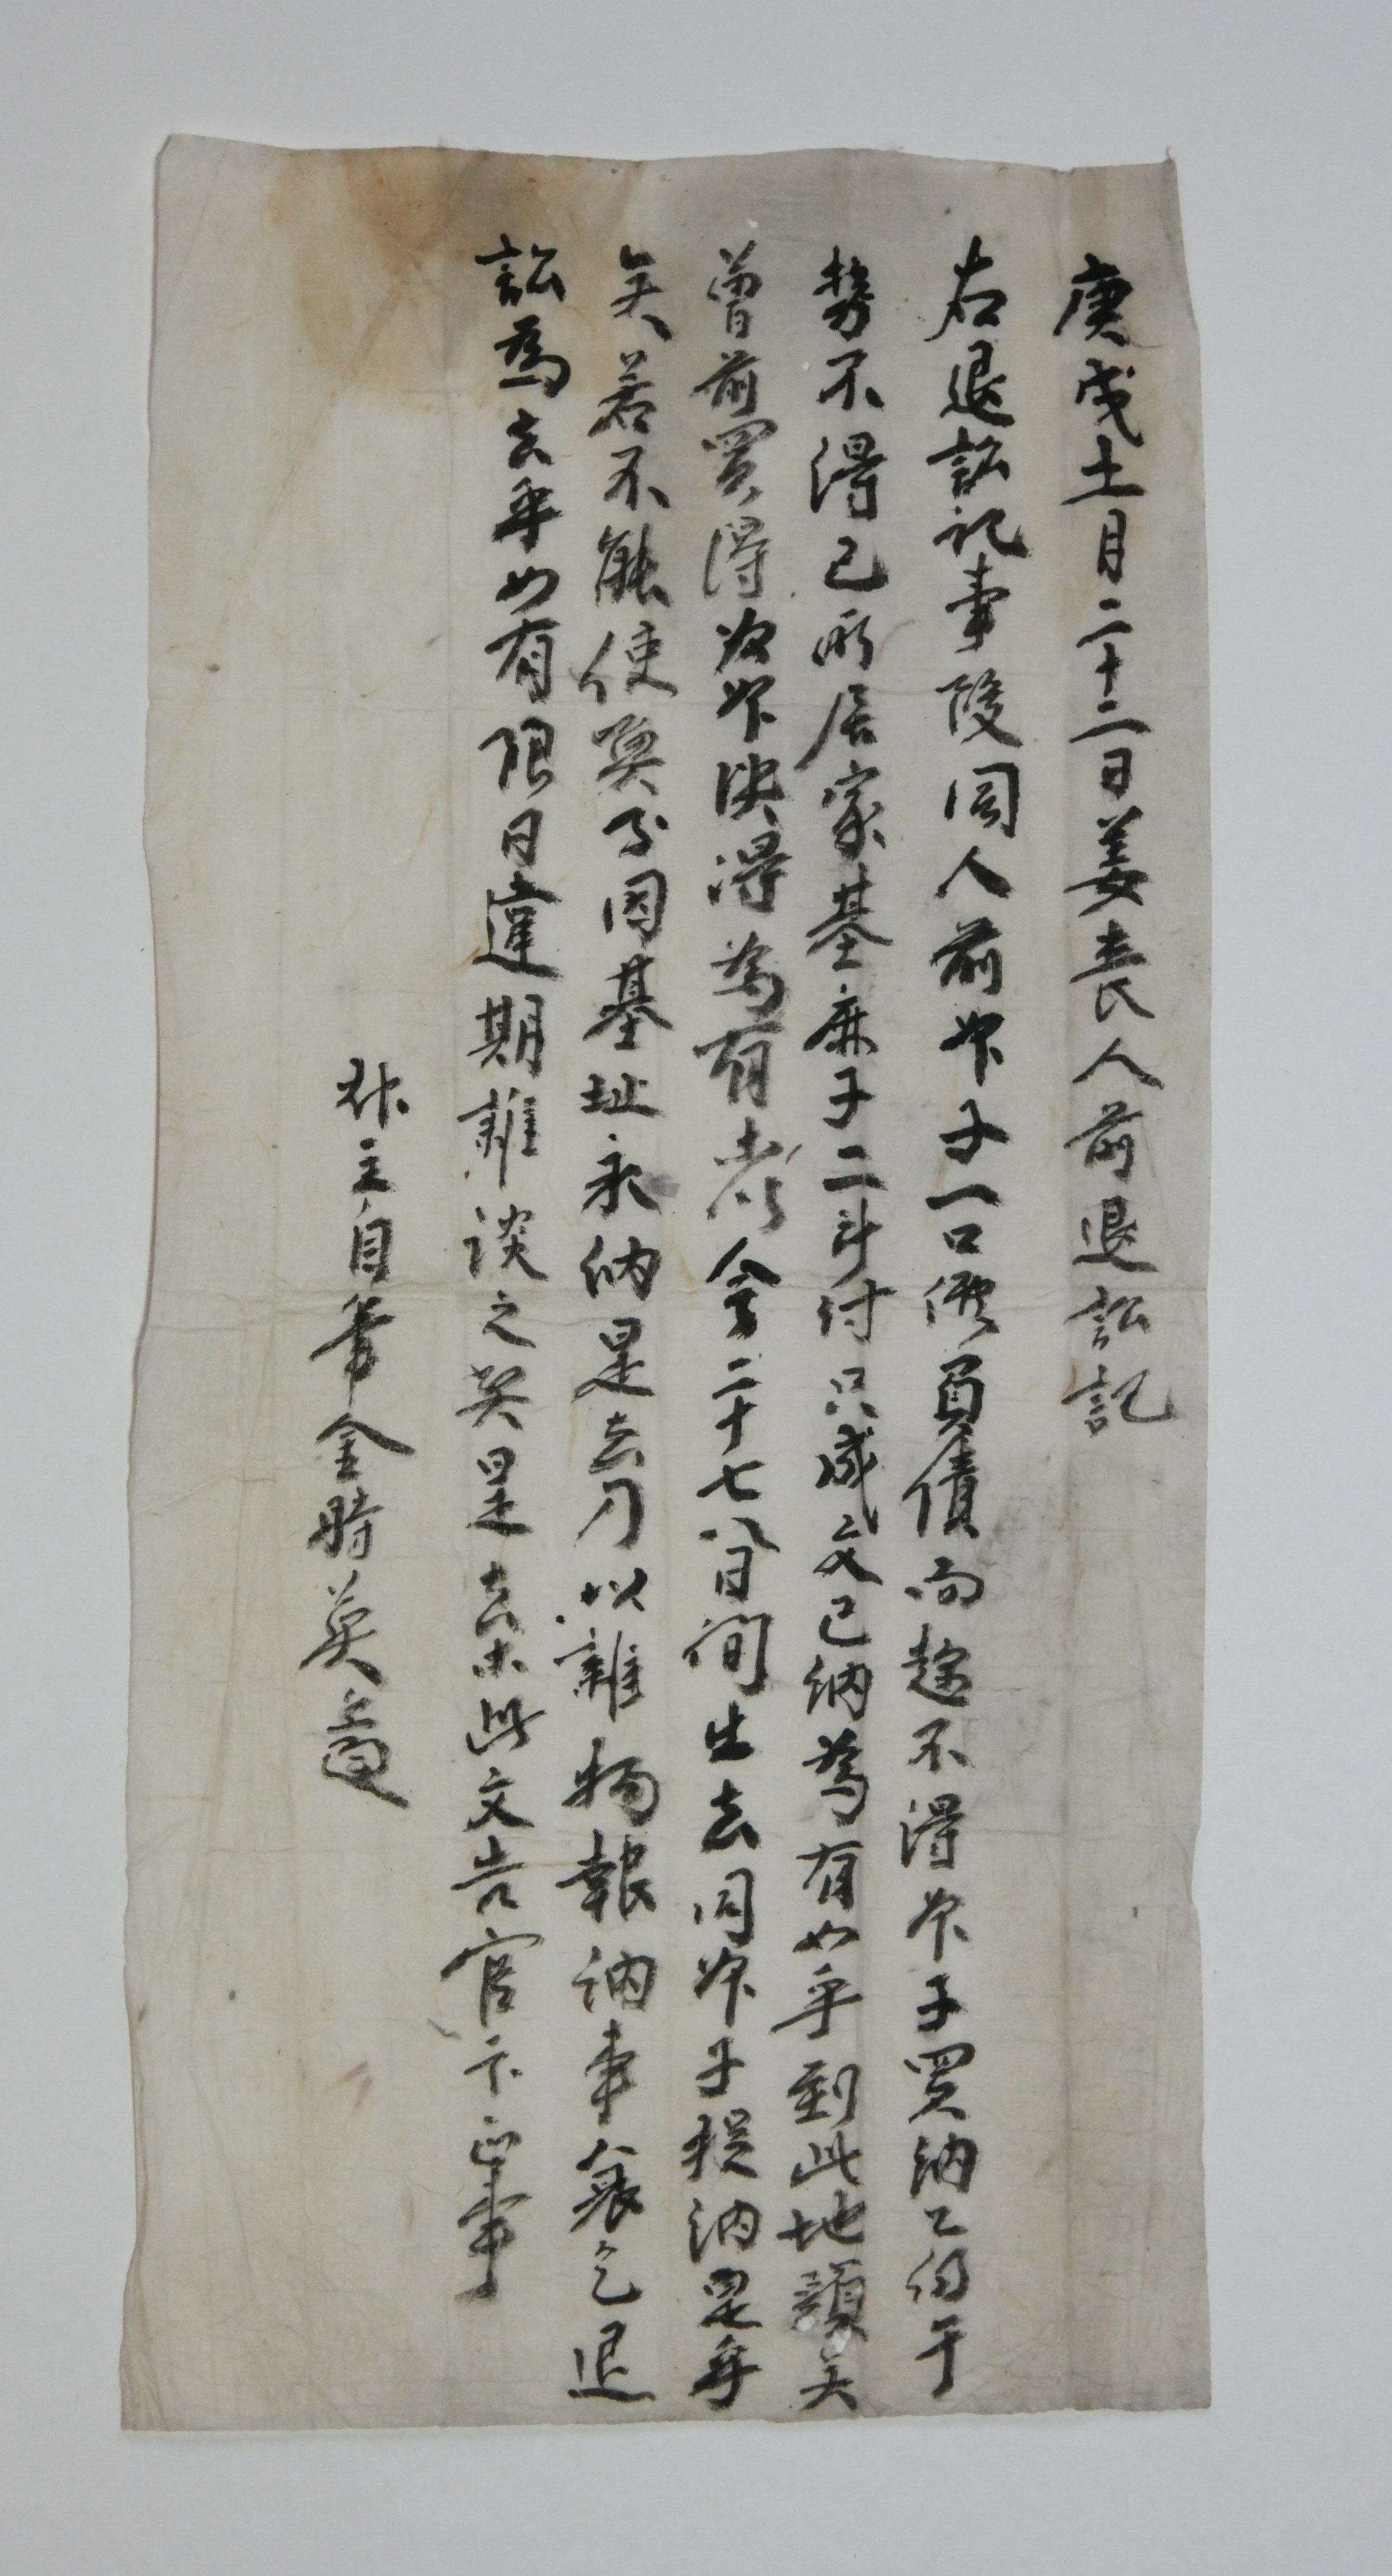 庚戌十一月二十二日姜喪人前退訟記
右退訟記事段同人前 子一口 負債而趁不得 子買納乙仍于
勢不得已所居家基麻子二斗付只成文已納爲有如乎到此地頭矣
曾前買得 決得爲有 今二十七八日間出去同 子捉納是乎
矣若不能使矣身同基址永納是去乃以雜物報納事哀乞退
訟爲去乎如有限日違期雜談之弊是去 此文告官卞正事
主自筆金時英